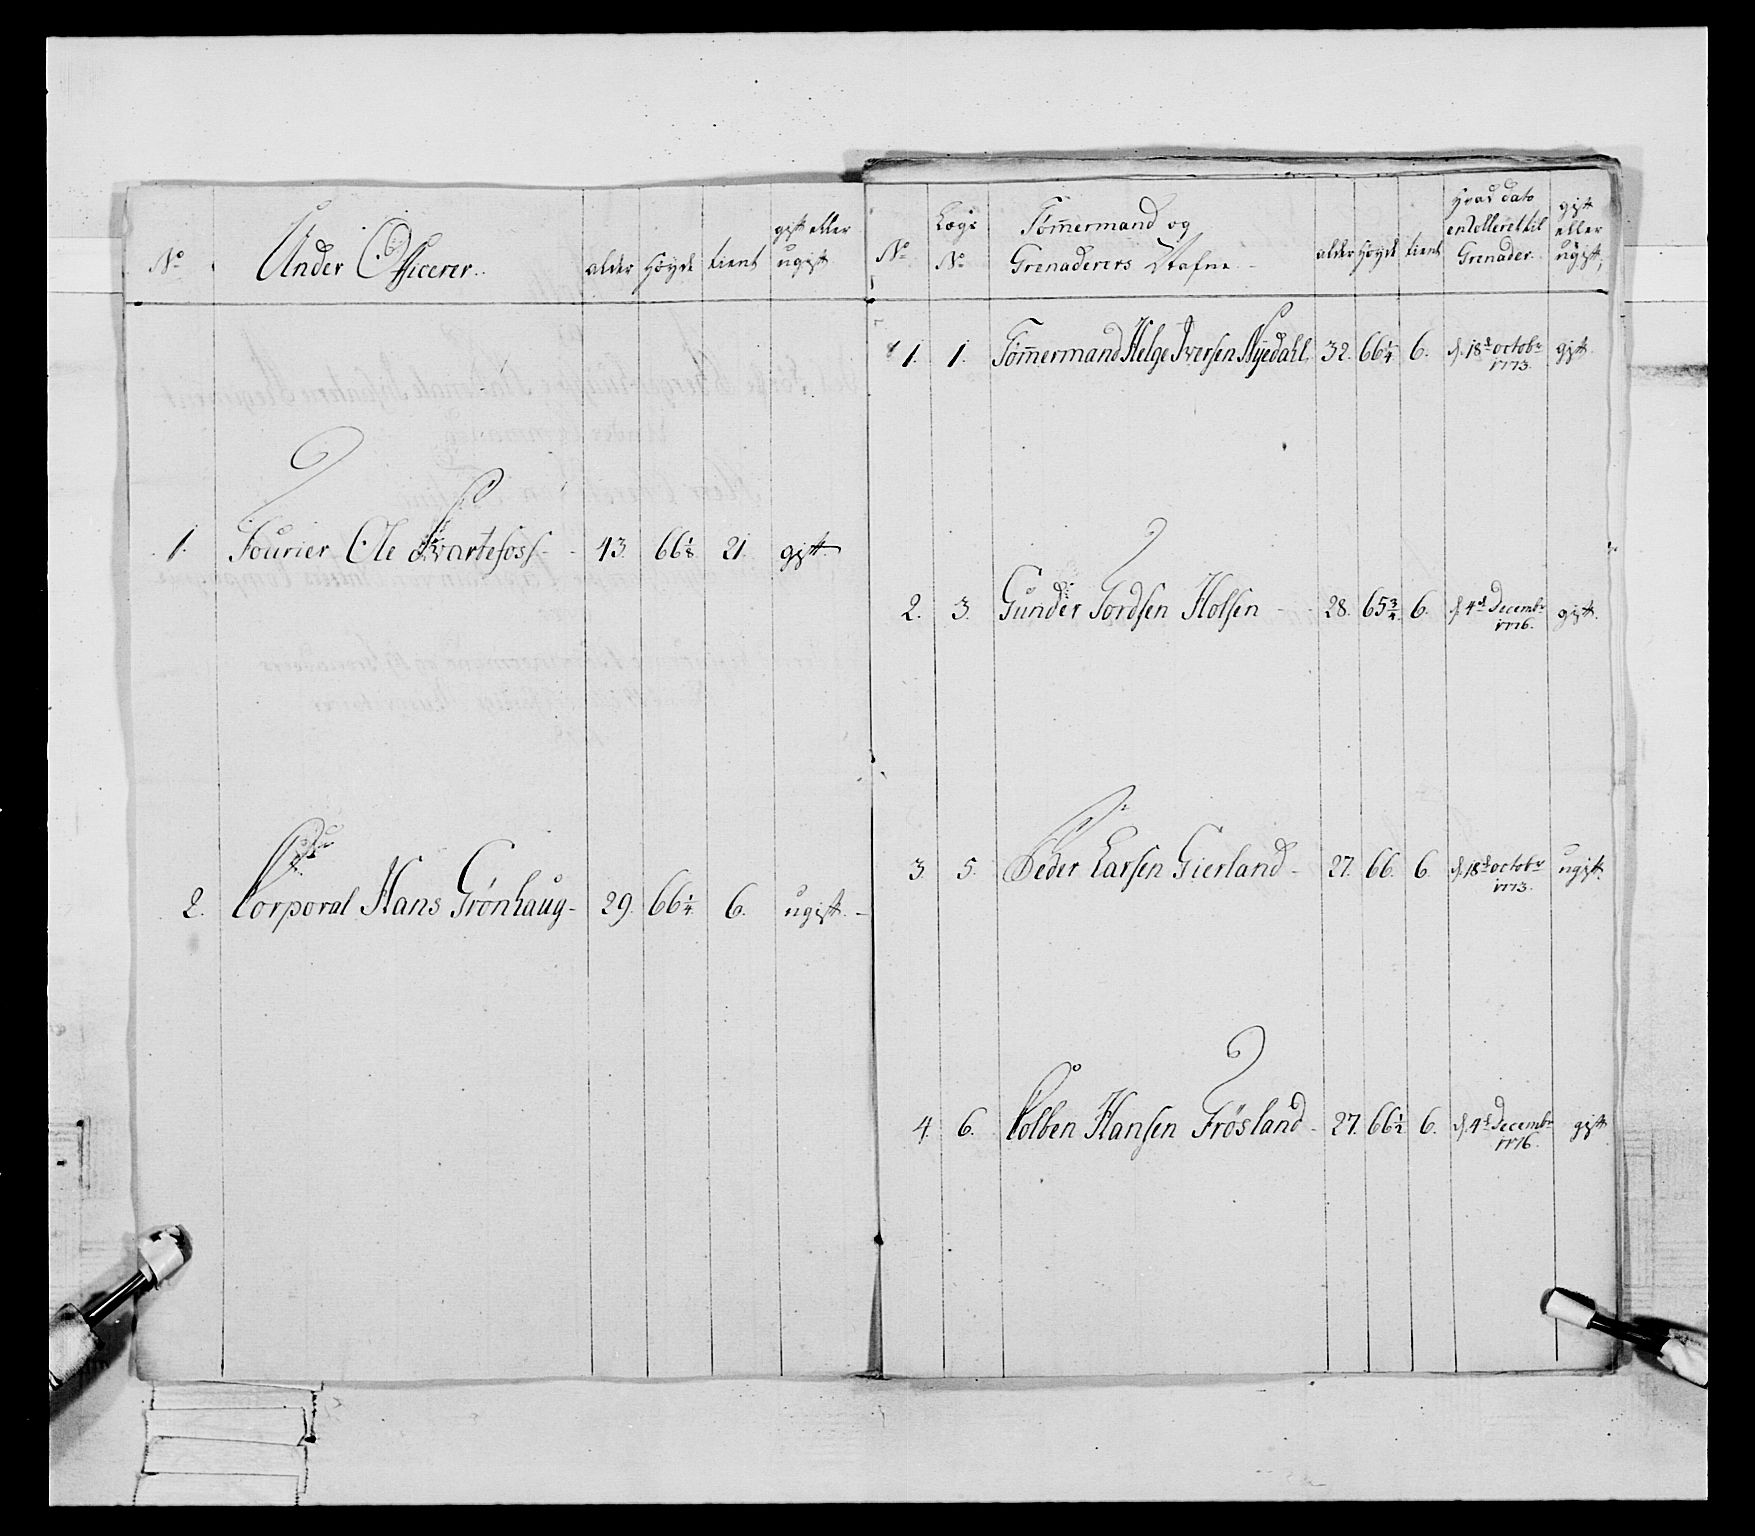 No | Under Officerer. | alder | Høyde | tient | gift eller ugift
1. | Fourier Ole Svartefoss | 43. | 66 1/8 | 21. | gift.
2. | Corporal Hans Grönhaug | 29. | 66 1/4 | 6. | ugift.
No | Lægs No | Tøm̄ermand og Grenaderers Nafne | alder | Høyde | tient | Hvad dato enrolleret til Grenader | gift eller ugift
1. | 1. | Tøm̄ermand Helge Iversen Nyedahl | 32. | 66 1/4 | 6. | d. 18de octobr 1773. | gift
2. | 3. | Gunder Tordsen Holsen | 28. | 65 3/4 | 6. | d. 4de Decembr 1776. | gift.
3. | 5. | Peder Larsen Gierland | 27. | 66. | 6. | d. 18de octobr 1773. | ugift.
4. | 6. | Colben Hansen Frösland | 27. | 66 1/2 | 6. | d. 4de Decembr 1776. | gift